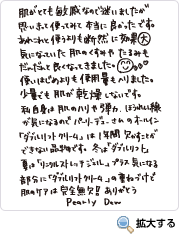 肌がとても敏感なので迷いましたが
思いきって使ってみて本当に良かったです。
あれこれと使うよりも断然に効果大
気になっていた肌のくすみや たるみも
だんだんと良くなってきました。
使いはじめよりも使用量もへりました。
少量でも肌が乾燥しないです。
私自身は肌のハリや弾力、ほうれい線
が気になるので パーリーデュー さんのオールイン
「ダブルリフトクリーム」は1年間欠かすことが
できない品物です。冬は「ダブルリフト」
夏は「リンクルストレッチジェル」プラス気になる
部分に「ダブルリフトクリーム」の重ねづけで
肌のケアは完全無欠!! ありがとう
Pearly Dew
拡大する